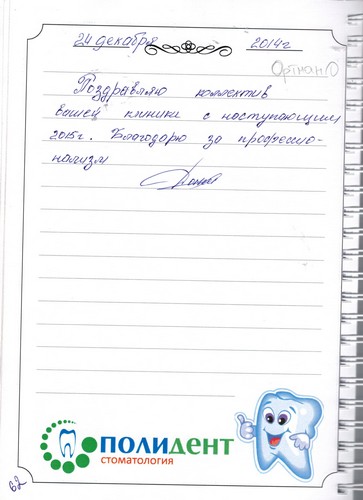 24 декабря 2014г
Ортман Ю
Поздравляю коллектив
вашей клиники с наступающим
2015г. Благодарю за профессио-
нализм
ПОЛИДЕНТ
СТОМАТОЛОГИЯ
62